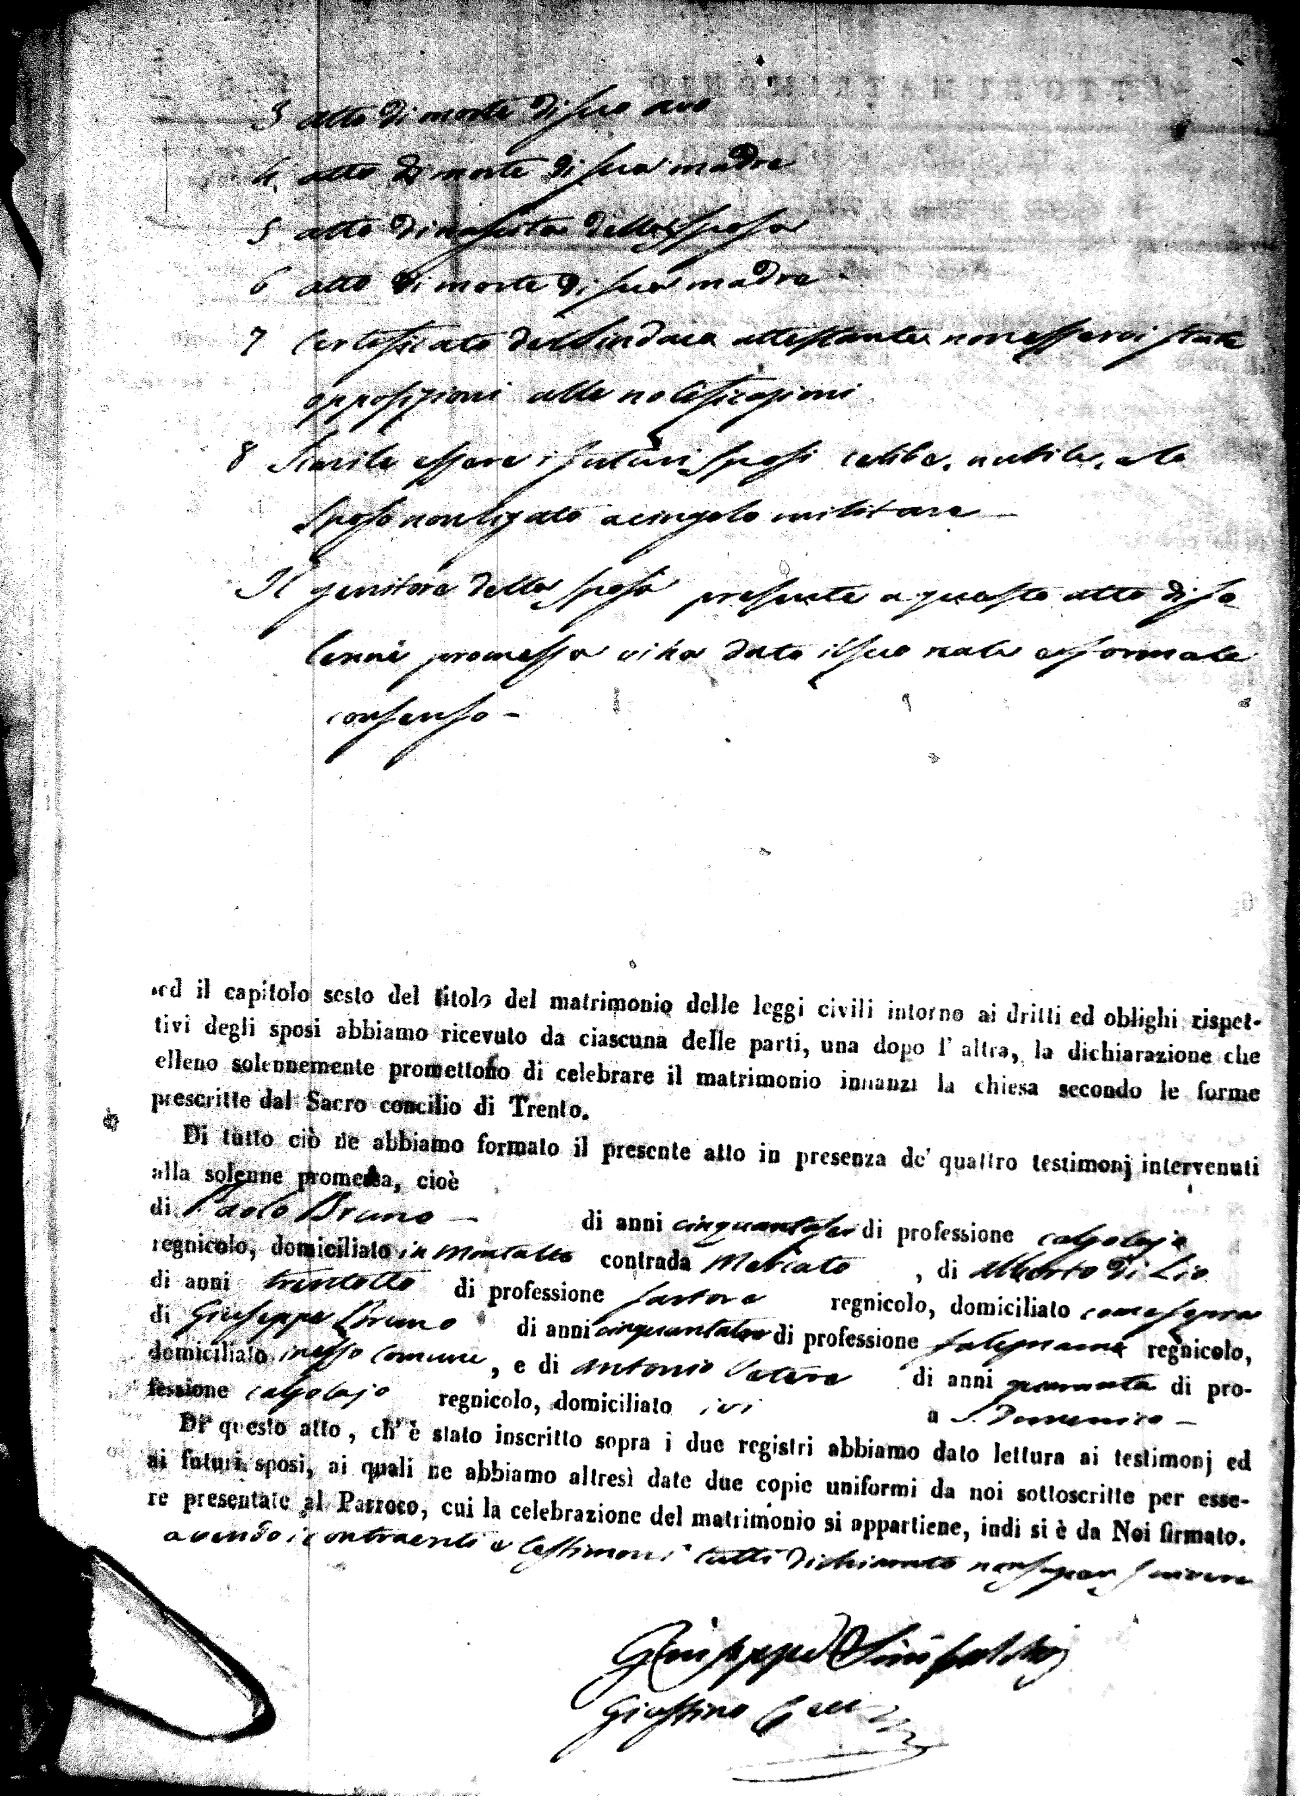 3 atto di morte di suo avo
4 atto di morte di sua madre
5 atto di nascita della sposa
6 atto di morte di sua madre
7 Certificato del Sindaco attestante non esservi state
opposizioni alle notificazioni
8 Simile essere i futuri sposi celibe, nubile, e lo
sposo non ligato a cingolo militare —
Il genitore della sposa presente a questo atto di so
lenne promessa vi ha dato il suo reale e formale
consenso —
ed il capitolo sesto del titolo del matrimonio delle leggi civili intorno ai dritti ed oblighi rispet-
tivi degli sposi abbiamo ricevuto da ciascuna delle parti, una dopo l' altra, la dichiarazione che
elleno solennemente promettono di celebrare il matrimonio innanzi la chiesa secondo le forme
prescritte dal Sacro concilio di Trento.
Di tutto ciò ne abbiamo formato il presente atto in presenza de' quattro testimonj intervenuti
alla solenne promessa, cioè
di Paolo Bruno — di anni cinquantasei di professione calzolajo
regnicolo, domiciliato in Montalto contrada Mercato , di Alberto di Lio
di anni trentotto di professione sartore regnicolo, domiciliato come sopra
di Giuseppe Bruno di anni cinquantatre di professione falegname regnicolo,
domiciliato in esso comune , e di Antonio Vetere di anni quaranta di pro-
fessione calzolajo regnicolo, domiciliato ivi a S. Domenico —
Di questo atto, ch' è stato inscritto sopra i due registri abbiamo dato lettura ai testimonj ed
ai futuri sposi, ai quali ne abbiamo altresì date due copie uniformi da noi sottoscritte per esse-
re presentate al Parroco, cui la celebrazione del matrimonio si appartiene, indi si è da Noi firmato.
avendo i contraenti e testimoni tutti dichiarato non saper scrivere
Giuseppe
Giustino